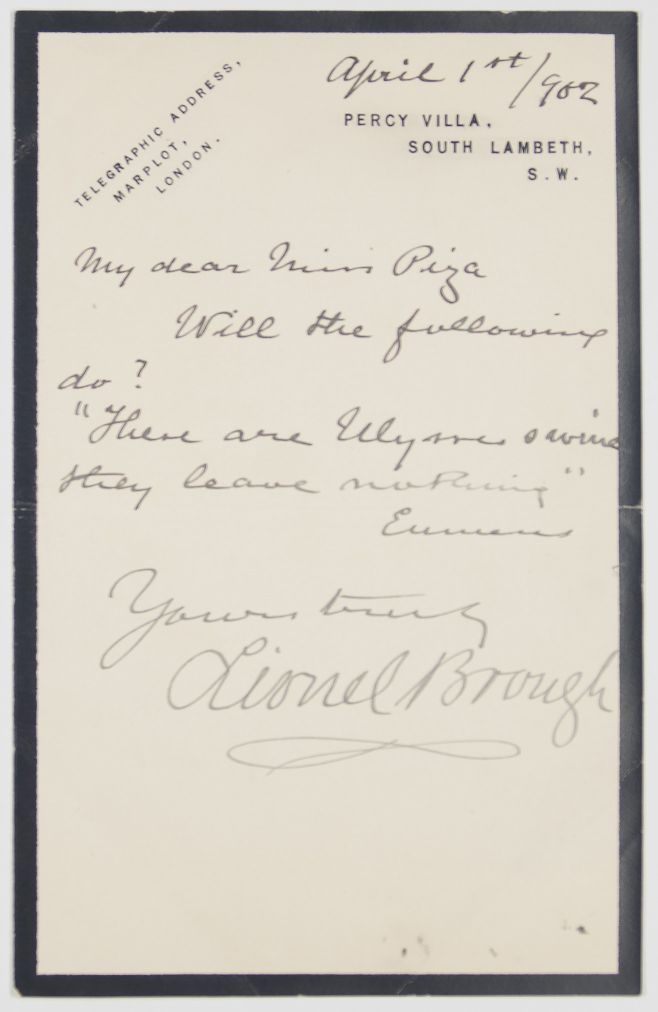 TELEGRAPHIC ADDRESS,
MARPLOT,
LONDON.
April 1st/902
PERCY VILLA,
SOUTH LAMBETH,
S.W.
My dear Miss Piza
Will the following
do?
"These are Ulysses swine
they leave nothing"
Eumeus
Yours truly
Lionel Brough